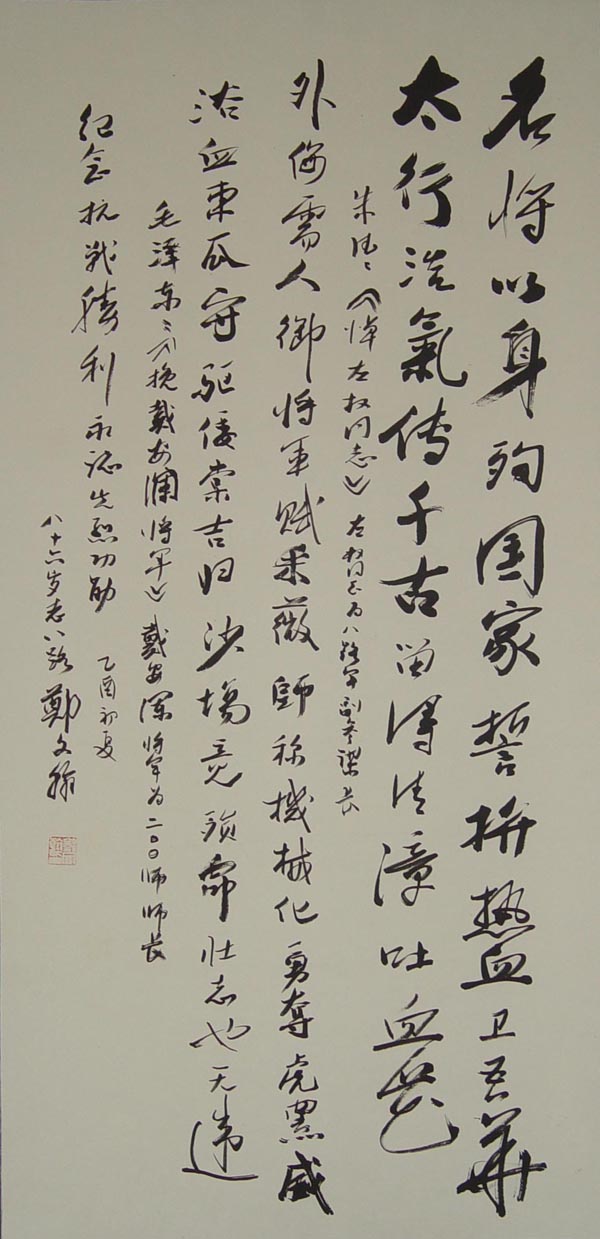 名将以身殉国家誓拚热血卫吾华
太行浩氣传千古留得清漳吐血花
朱德《悼左权同志》左权同志为八路军副参谋长
外侮需人御将军赋采薇師称機械化勇奪虎罴威
浴血東瓜守驱倭棠吉归沙場竟殒命壮志也无违
毛泽东《挽戴安澜将军》戴安澜将军为二〇〇师师长
纪念抗战勝利永志先烈功勋
乙酉初夏
八十六岁老八路鄭文翰